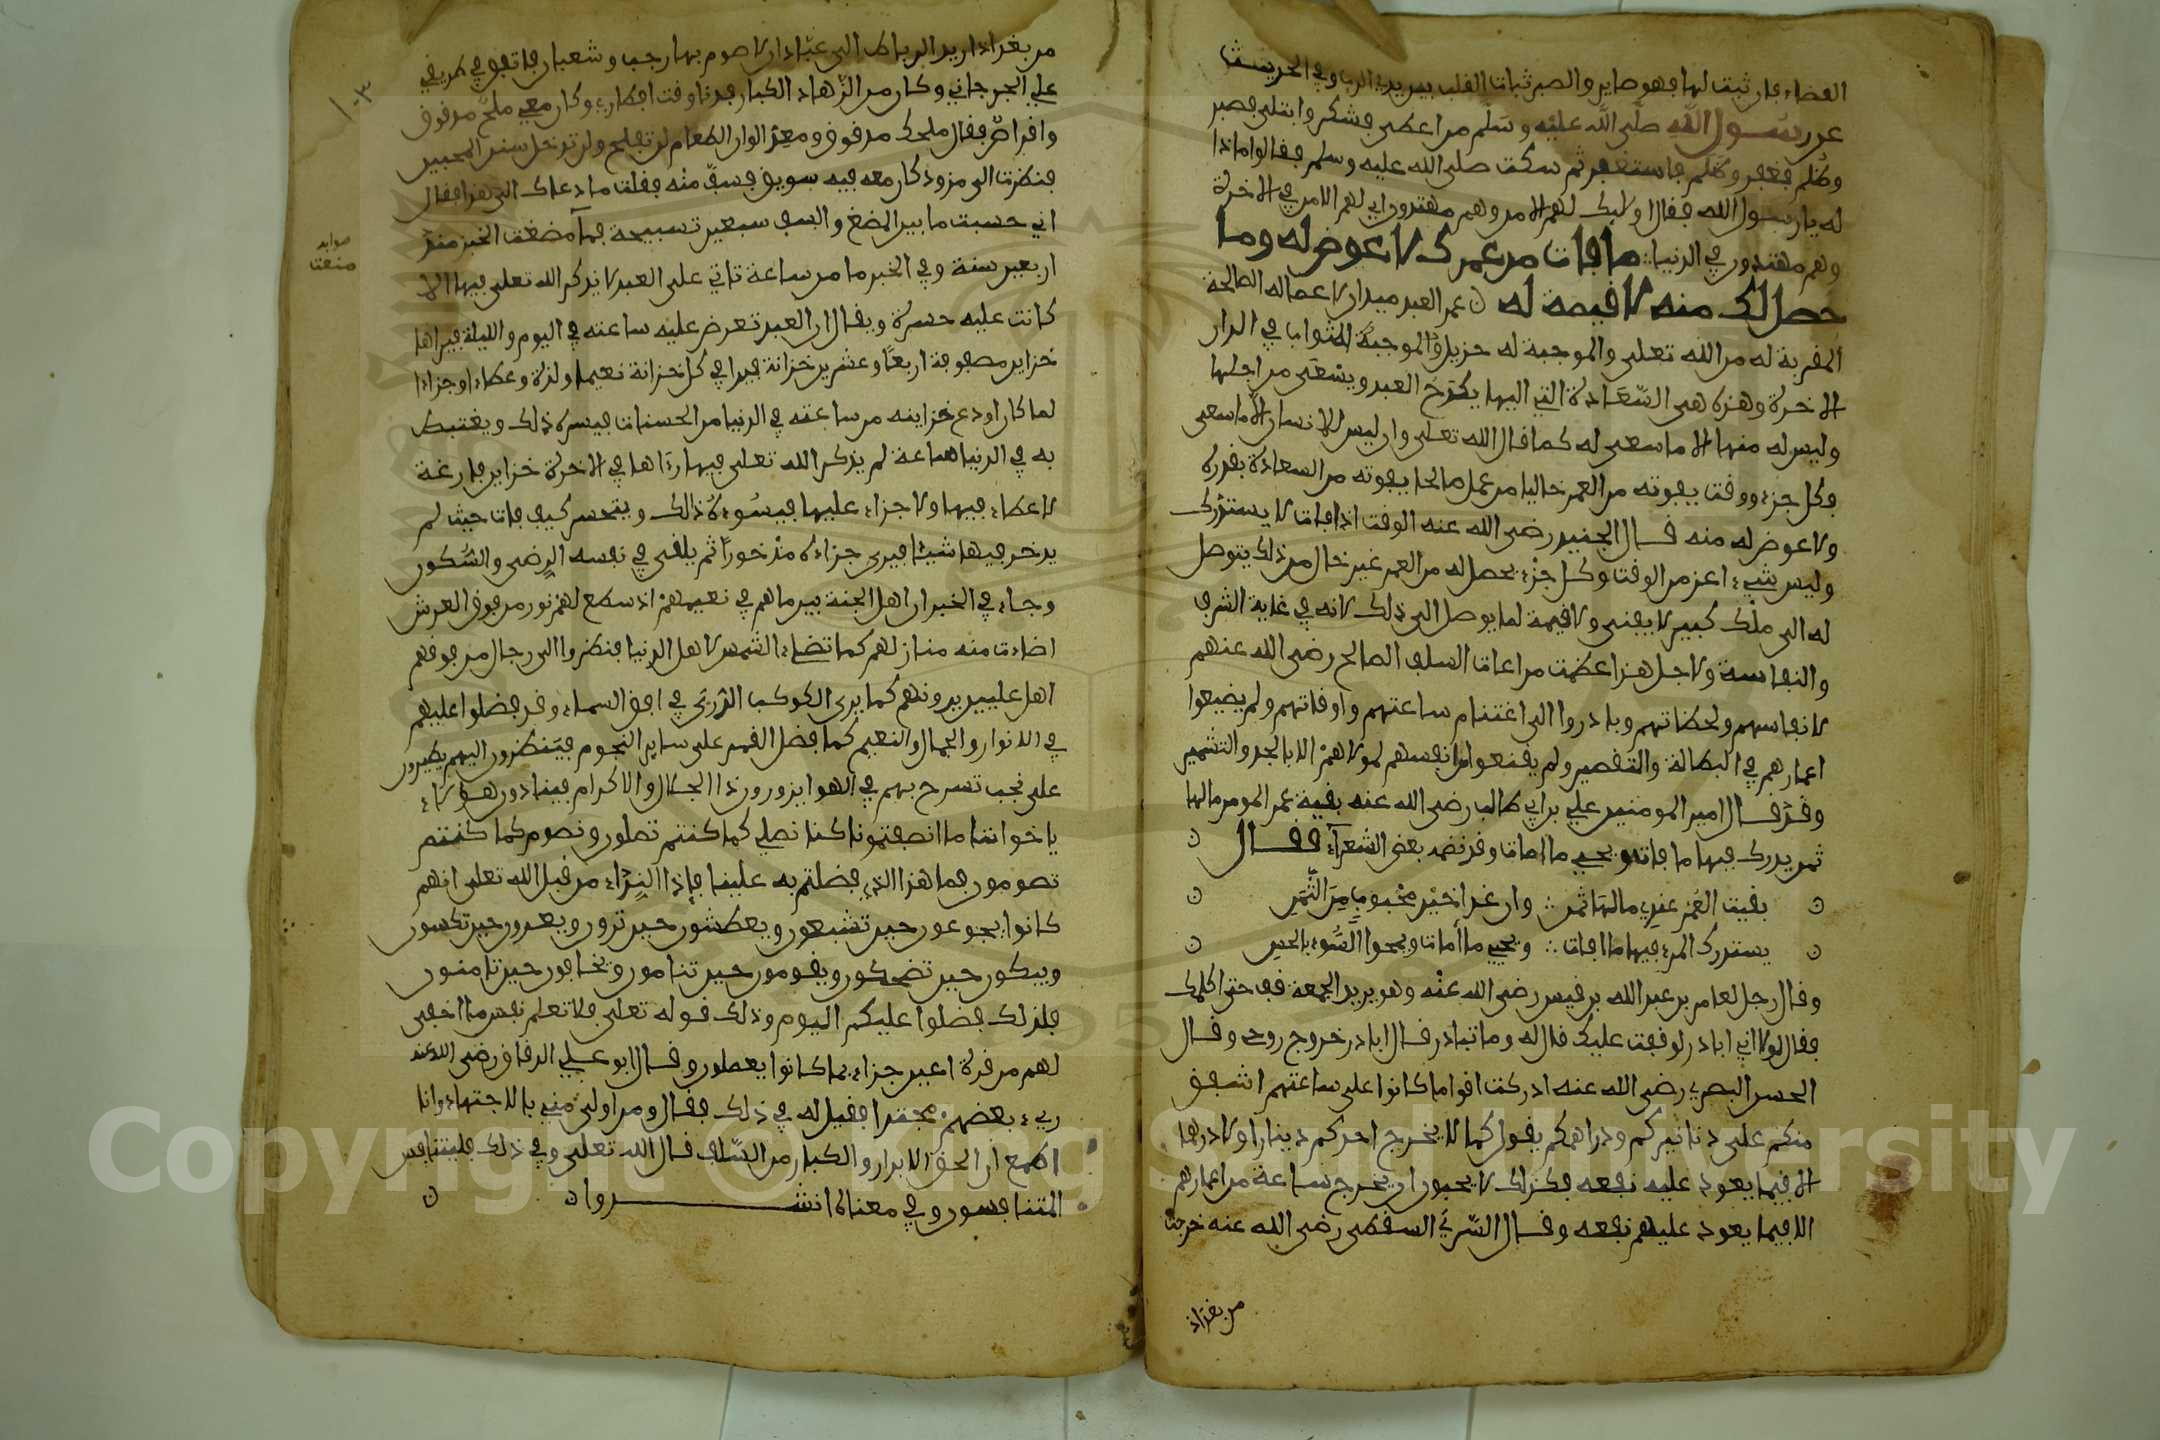 القضاء فان ثبت لها فهو صابر والصبر ثبات القلب بين يدي الرب وفي الحديث
عن رسول الله صلى الله عليه وسلم من اعطى فشكر وابتلى فصبر
وظلم فغفر وظلم فاستغفر ثم سكت صلى الله عليه وسلم فقالوا ماذا
له يا رسول الله فقال اولئك لهم الامن وهم مهتدون اي لهم الامن في الاخرة
وهم مهتدون في الدنيا ما فات من عمرك لا عوض له وما
حصل لك منه لا قيمة له عمر العبد ميدان لاعماله الصالحة
المقربة له من الله تعلى والموجبة له جزيل الثواب في الدار
الاخرة وهذه هي السعادة التي اليها يكدح العبد ويسعى من اجلها
وليس له منها الا ما سعى له كما قال الله تعلى وان ليس للانسان الا ما سعى
فكل جزء ووقت يفوته من العمر خاليا من عمل صالح يفوته من السعادة بقدره
ولا عوض له منه قال الجنيد رضي الله عنه الوقت اذا فات لا يستدرك
وليس شيء اعز من الوقت وكل جزء يحصل له من العمر غير خال من ذلك يتوصل
له الى ملك كبير لا يفنى ولا قيمة لما يوصل الى ذلك لانه في غاية الشرف
والنفاسة ولاجل هذا عظمت مراعات السلف الصالح رضي الله عنهم
لانفاسهم ولحظاتهم وبادروا الى اغتنام ساعتهم واوقاتهم ولم يضيعوا
اعمارهم في البطالة والتقصير ولم يقنعوا من انفسهم لمولاهم الا بالجد والتشمير
وقد قال امير المومنين علي بن ابي طالب رضي الله عنه بقية عمر المومن ما لها
ثمن يدرك فيها ما فات ويحيي ما امات وقد نضمه بعض الشعراء فقال
بقيت العمر عندي ما لها ثمن وان غدا خير محبوب من الثمن
يستدرك المرء فيها ما افات ويحيي ما أمات ويمحوا السوء بالحسن
وقال رجل لعامر بن عبد الله بن قيس رضي الله عنه وهو يريد الجمعة قف حتى اكلمك
فقال لولا اني ابادر لوقفت عليك قال له وما تبادر قال ابادر خروج روحي وقال
الحسن البصري رضي الله عنه ادركت اقواما كانوا على ساعتهم اشفق
منكم على دنانيركم ودراهمكم يقول كما لا يخرج احدكم دينارا ولا درهما
الا فيما يعود عليه نفعه فكذلك لا يحبون ان يخرج ساعة من اعمارهم
الا فيما يعود عليهم نفعه وقال السري السقطي رضي الله عنه خرجت
من بغداد
من بغداد اريد الرباط الى عبادان لاصوم بها رجب وشعبان فاتفق في طريقي
علي الجرجاني وكان من الزهاد الكبار فدنا وقت افطاري وكان معي ملح مدقوق
واقراض فقال ملحك مدقوق ومعك الوان الطعام لن تفلح ولن تدخل سنن المحبين
فنظرت الى مزود كان معه فيه سويق فسف منه فقلت ما دعاك الى هذا فقال
اني حسبت ما بين المضغ والسف سبعين تسبيحة فما مضغت الخبز منذ
اربعين سنة وفي الخبر ما من ساعة تاتي على العبد لا يذكر الله تعلى فيها الا
كانت عليه حسرة ويقال ان العبد تعرض عليه ساعته في اليوم والليلة فيراها
خزاين مصفوفة اربعا وعشرين خزانة فيرا في كل خزانة نعيما ولذة وعطاء وجزاءا
لما كان اودع خزاينه من ساعته في الدنيا من الحسنات فيسره ذلك ويغتبط
به في الدنيا ساعة لم يذكر الله تعلى فيها رءاها في الاخرة خزاين فارغة
لا عطاء فيها ولا جزاء عليها فيسوءه ذلك ويتحسر كيف فات حيث لم
يدخر فيها شيئا فيرى جزاءه مذخورا ثم يلقى في نفسه الرضى والسكون
وجاء في الخبر ان اهل الجنة بينما هم في نعيمهم اذ سطع لهم نور من فوق العرش
اضاءت منه منازلهم كما تضاء الشمس لاهل الدنيا فنظروا الى رجال من فوقهم
اهل عليين يرونهم كما يرى الكوكب الدري في افق السماء وقد فضلوا عليهم
في الانوار والجمال والنعيم كما فضل القمر على ساير النجوم فينظرون اليهم يطيرون
على نجب تسرح بهم في الهوا يزورون ذا الجلال والاكرام فينادون هؤلاء
ياخواننا ما انصفتمونا كنا نصلي كما كنتم تصلون ونصوم كما كنتم
تصومون فما هذا الذي فضلتم به علينا فاذا النداء من قبل الله تعلى انهم
كانوا يجوعون حين تشبعون ويعطشون حين تروون ويعرون حين تكسون
ويبكون حين تضحكون ويقومون حين تنامون ويخافون حين تامنون
فلذلك فضلوا عليكم اليوم وذلك قوله تعلى فلا تعلم نفس ما اخفي
لهم من قرة اعين جزاء بما كانوا يعملون وقال ابو علي الدقاق رضي الله عنه
ريء بعضهم مجتهدا فقيل له في ذلك فقال ومن اولى مني بالاجتهاد وانا
اطمع ان الحق الابرار والكبار من السلف قال الله تعلى وفي ذلك فليتنافس
المتنافسون وفي معناه انشدوا